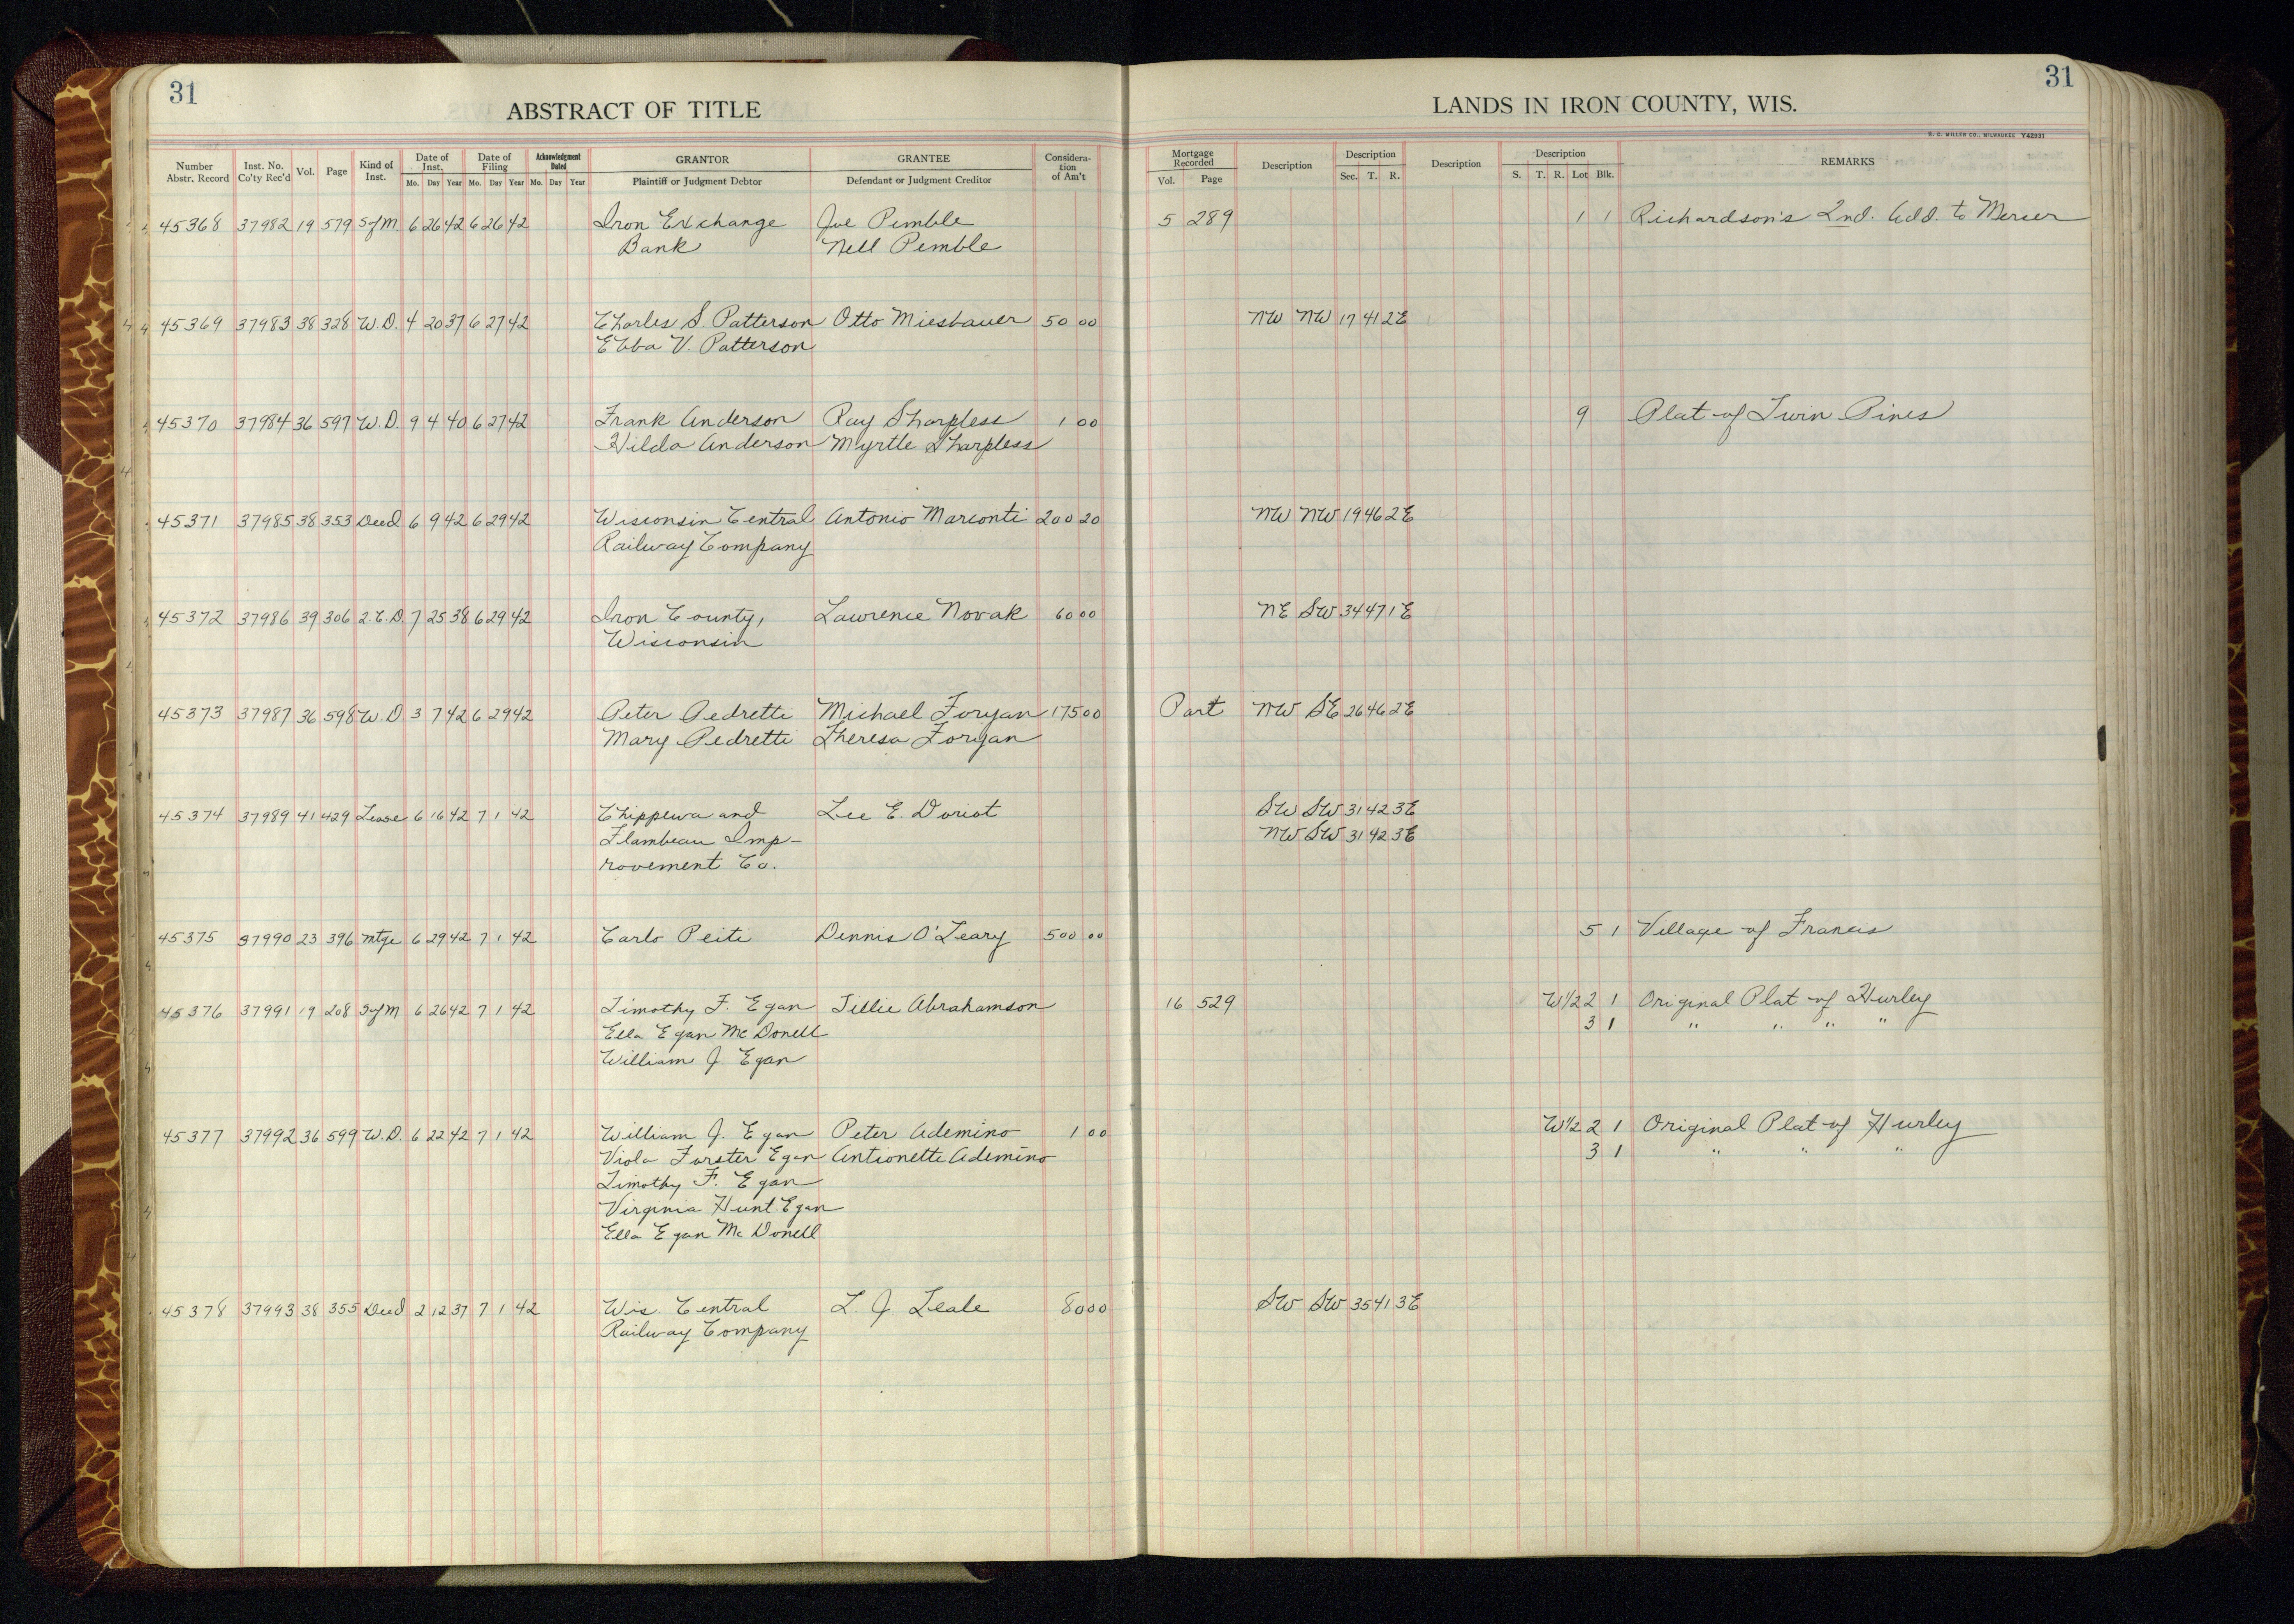 31
31
ABSTRACT OF TITLE
LANDS IN IRON COUNTY, WIS.
H. C. MILLER CO., MILWAUKEE Y42931
Number Abstr. Record Inst. No. Co'ty Rec'd Vol. Page Kind of Inst. Date of Inst. Mo. Day Year Date of Filing Mo. Day Year Acknowledgment Dated Mo. Day Year GRANTOR Plaintiff or Judgment Debtor GRANTEE Defendant or Judgment Creditor Considera-tion of Am't Mortgage Recorded Vol. Page Description Description Sec. T. R. Description Description S. T. R. Lot Blk. REMARKS
45368 37982 19 579 SofM 6 26 42 6 26 42 Iron Exchange Joe Pemble 5 289 1 1 Richardson's 2nd. Add. to Mercer
Bank Nell Pemble
45369 37983 38 328 W.D. 4 20 37 6 27 42 Charles S. Patterson Otto Miesbauer 50 00 NW NW 17 41 2E
Ebba V. Patterson
45370 37984 36 597 W.D. 9 4 40 6 27 42 Frank Anderson Ray Sharpless 1 00 9 Plat of Twin Pines
Hilda Anderson Myrtle Sharpless
45371 37985 38 353 Deed 6 9 42 6 29 42 Wisconsin Central Antonio Marconti 200 20 NW NW 19 46 2E
Railway Company
45372 37986 39 306 2.C.D. 7 25 38 6 29 42 Iron County, Lawrence Novak 60 00 NE SW 34 47 1E
Wisconsin
45373 37987 36 598 W.D 3 7 42 6 29 42 Peter Pedretti Michael Foryan 175 00 Part NW SE 26 46 2E
Mary Pedretti Theresa Foryan
45374 37989 41 429 Lease 6 16 42 7 1 42 Chippewa and Lee E. Doriot SW SW 31 42 3E
Flambeau Imp- NW SW 31 42 3E
rovement Co.
45375 37990 23 396 Mtge 6 29 42 7 1 42 Carlo Peiti Dennis O'Leary 500 00 5 1 Village of Francis
45376 37991 19 208 SofM 6 26 42 7 1 42 Timothy F. Egan Tillie Abrahamson 16 529 W1/2 2 1 Original Plat of Hurley
Ella Egan McDonell 3 1 " " " "
William J. Egan
45377 37992 36 599 W.D. 6 22 42 7 1 42 William J. Egan Peter Ademino 1 00 W1/2 2 1 Original Plat of Hurley
Viola Forster Egan Antionette Ademino 3 1 " " "
Timothy F. Egan
Virginia Hunt Egan
Ella Egan McDonell
45378 37993 38 355 Deed 2 12 37 7 1 42 Wis. Central L. J. Leale 80 00 SW SW 35 41 3E
Railway Company